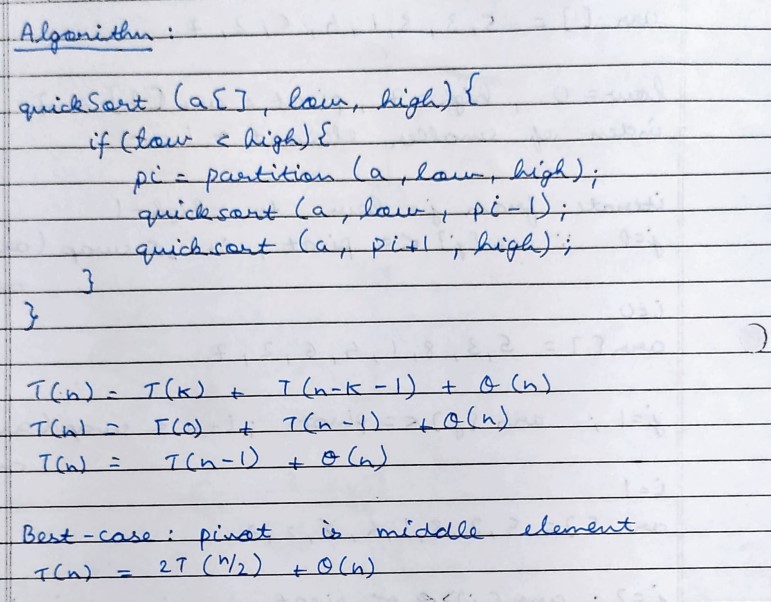 Algorithm :
quickSort (a[], low, high) {
if (low < high) {
pi = partition (a, low, high);
quicksort (a, low, pi-1);
quicksort (a, pi+1, high);
}
}
T(n) = T(k) + T(n-k-1) + θ(n)
T(n) = T(0) + T(n-1) + θ(n)
T(n) = T(n-1) + θ(n)
Best-case : pivot is middle element
T(n) = 2T(n/2) + θ(n)